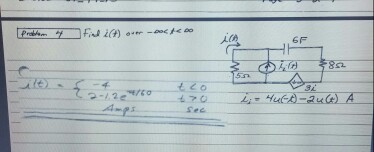 Problem 4 Find i(t) over -∞<t<∞
i(t) 6F
5Ω is(t) 8Ω
3i
i(t) = { -4 t<0
2-1.2e^-t/60 t>0
Amps sec
is = 4u(-t)-2u(t) A